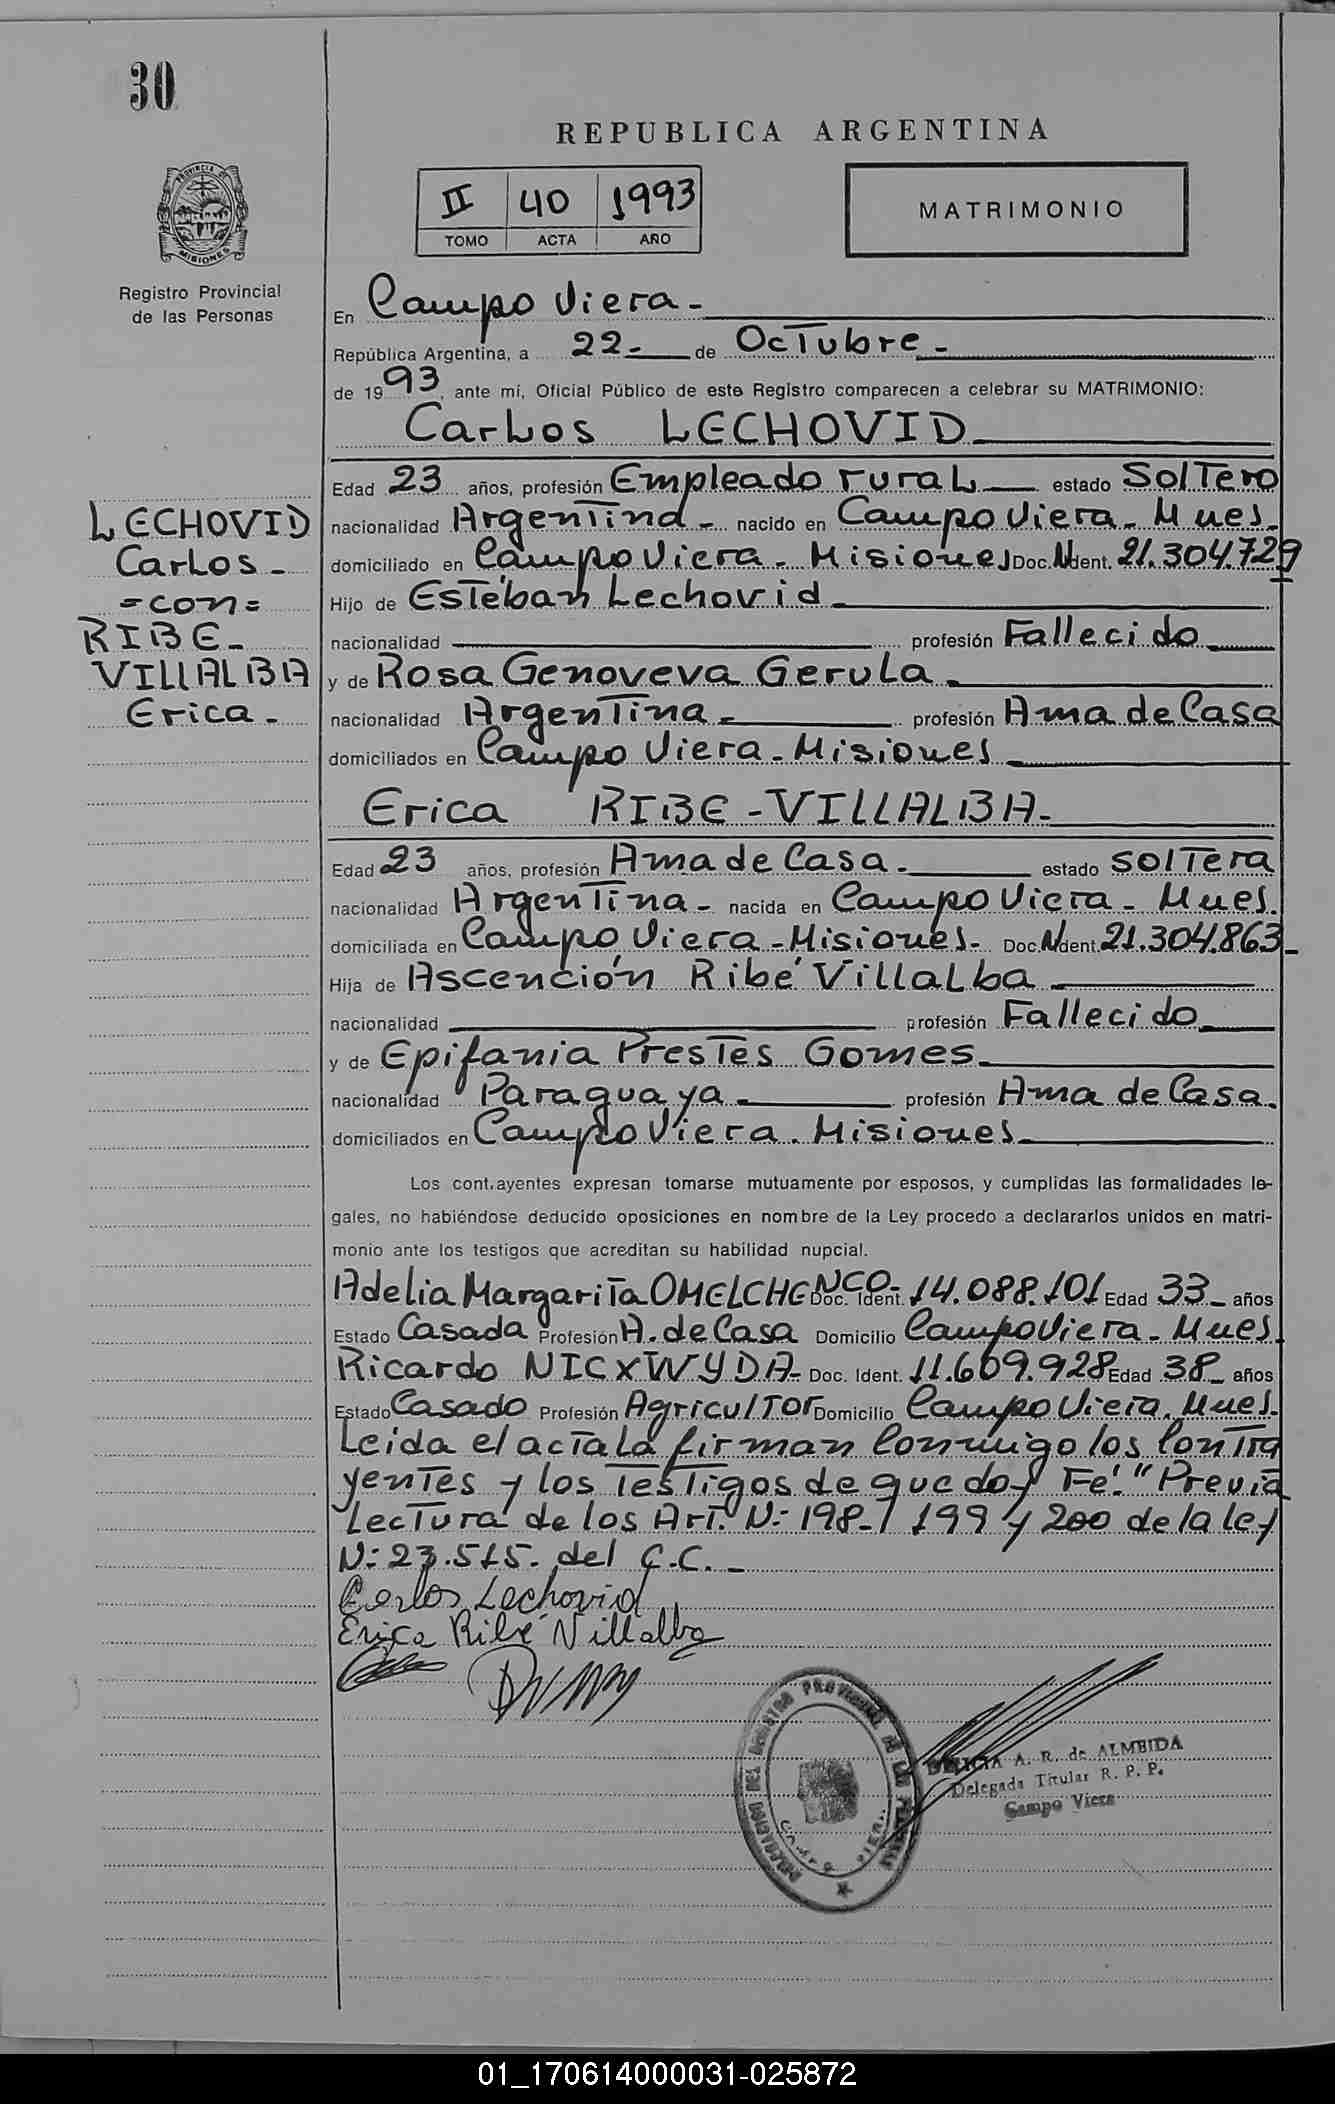 30
REPUBLICA ARGENTINA
II 40 1993
TOMO ACTA AÑO
MATRIMONIO
PROVINCIA DE
MISIONES
Registro Provincial
de las Personas
En Campo Viera-
República Argentina, a 22- de Octubre-
de 1993, ante mí, Oficial Público de este Registro comparecen a celebrar su MATRIMONIO:
Carlos LECHOVID
LECHOVID
Carlos-
=con=
RIBE-
VILLALBA
Erica-
Edad 23 años, profesión Empleado rural estado Soltero
nacionalidad Argentina- nacido en Campo Viera- Mnes.
domiciliado en Campo Viera- Misiones Doc.N.Ident. 21.304.729
Hijo de Estéban Lechovid
nacionalidad profesión Fallecido
y de Rosa Genoveva Gerula
nacionalidad Argentina- profesión Ama de Casa
domiciliados en Campo Viera-Misiones
Erica RIBE-VILLALBA-
Edad 23 años, profesión Ama de Casa- estado soltera
nacionalidad Argentina- nacida en Campo Viera- Mnes.
domiciliada en Campo Viera-Misiones- Doc.N.Ident. 21.304.863-
Hija de Ascención Ribé Villalba
nacionalidad profesión Fallecido
y de Epifania Prestes Gomes
nacionalidad Paraguaya profesión Ama de Casa.
domiciliados en Campo Viera. Misiones
Los cont.ayentes expresan tomarse mutuamente por esposos, y cumplidas las formalidades le-
gales, no habiéndose deducido oposiciones en nombre de la Ley procedo a declararlos unidos en matri-
monio ante los testigos que acreditan su habilidad nupcial.
Adelia Margarita OMELCHENCO- Doc. Ident. 14.088.101 Edad 33- años
Estado Casada Profesión A. de Casa Domicilio Campo Viera- Mnes.
Ricardo NICXWYDA- Doc. Ident. 11.609.928 Edad 38- años
Estado Casado Profesión Agricultor Domicilio Campo Viera. Mnes.
Leida el acta la firman Conmigo los Contra
yentes y los testigos de que doy Fé." Previa
Lectura de los Art. N:- 198-/ 199 y 200 de la ley
N:23.515. del C.C.-
Carlos Lechovid
Erica Ribé Villalba
DELEGACION DEL REGISTRO PROVINCIAL DE LAS PERSONAS
CAMPO VIERA
A. R. de ALMEIDA
Delegada Titular R. P. P.
Campo Viera
01_170614000031-025872